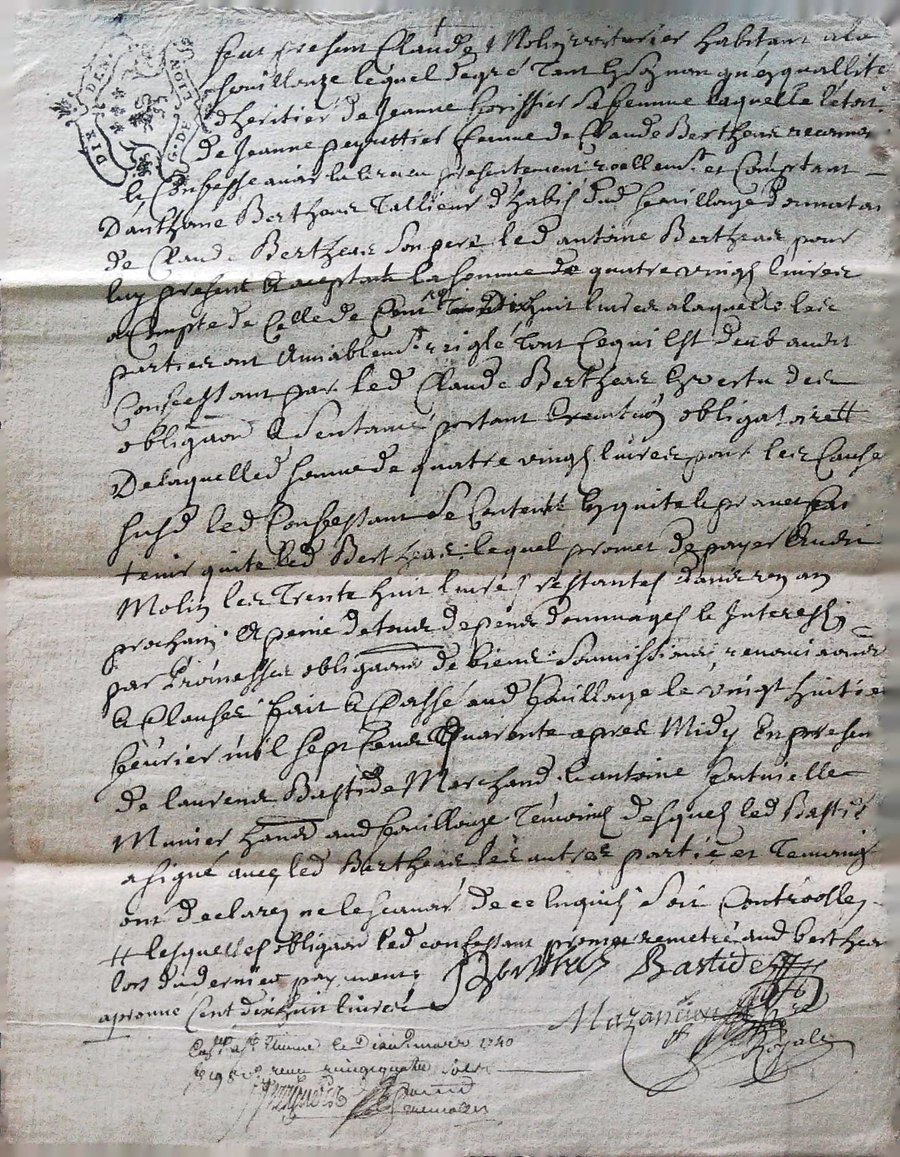 DIX DEN
G. DE LION
fut present Claude Molin voiturier habitant a la
fouillouze lequel de gré tant en son nom qu'en quallité
d'heritier de Jeanne sa femme laquelle l'etoit
de Jeanne femme de Claude Bertheas
confesse avoir presentement reellemt et comptant
D'anthoine Bertheas Tallieur d'habis dud fouillouze
de Claude Bertheas son pere led antoine Bertheas pour
luy present & acceptant la somme de quatre vingt livres
a compte de celle de Cent Dixhuit livres a laquelle les
parties ont amiablemt reiglé tout ce qui est deub audt
Confessant par led Claude Bertheas en vertu des
obligaon & sentance portant obligatoire #
De laquelle somme de quatre vingt livres pour les cause
susd led Confessant se contente en quite & promet
tenir quite led Bertheas lequel promet de payer audit
Molin les Trente huit livres restantes dans un an
prochain a peine de tous depens dommages & Interests
par Promesses obligaons de biens soumissions renonciaons
& Clauses fait & Passé aud fouillouze le vingt huitie
fevrier mil sept Cens Quarente apres Midy En presen
de laurens Bastide Marchand & antoine
Munier aud fouillouze Temoins desquels led Bastid
a signé avec led Bertheas les autres partie et Temoins
ont declarez ne le scavoir de ce enquis Soit Controollez
# lesquelles obligaon led confessant promet remetre aud bertheas
lors du dernier payement Bertheas Bastide
aprouve Cent dixhuit livres
Royale
le Dix mars 1740
reçu vingt quatre sols